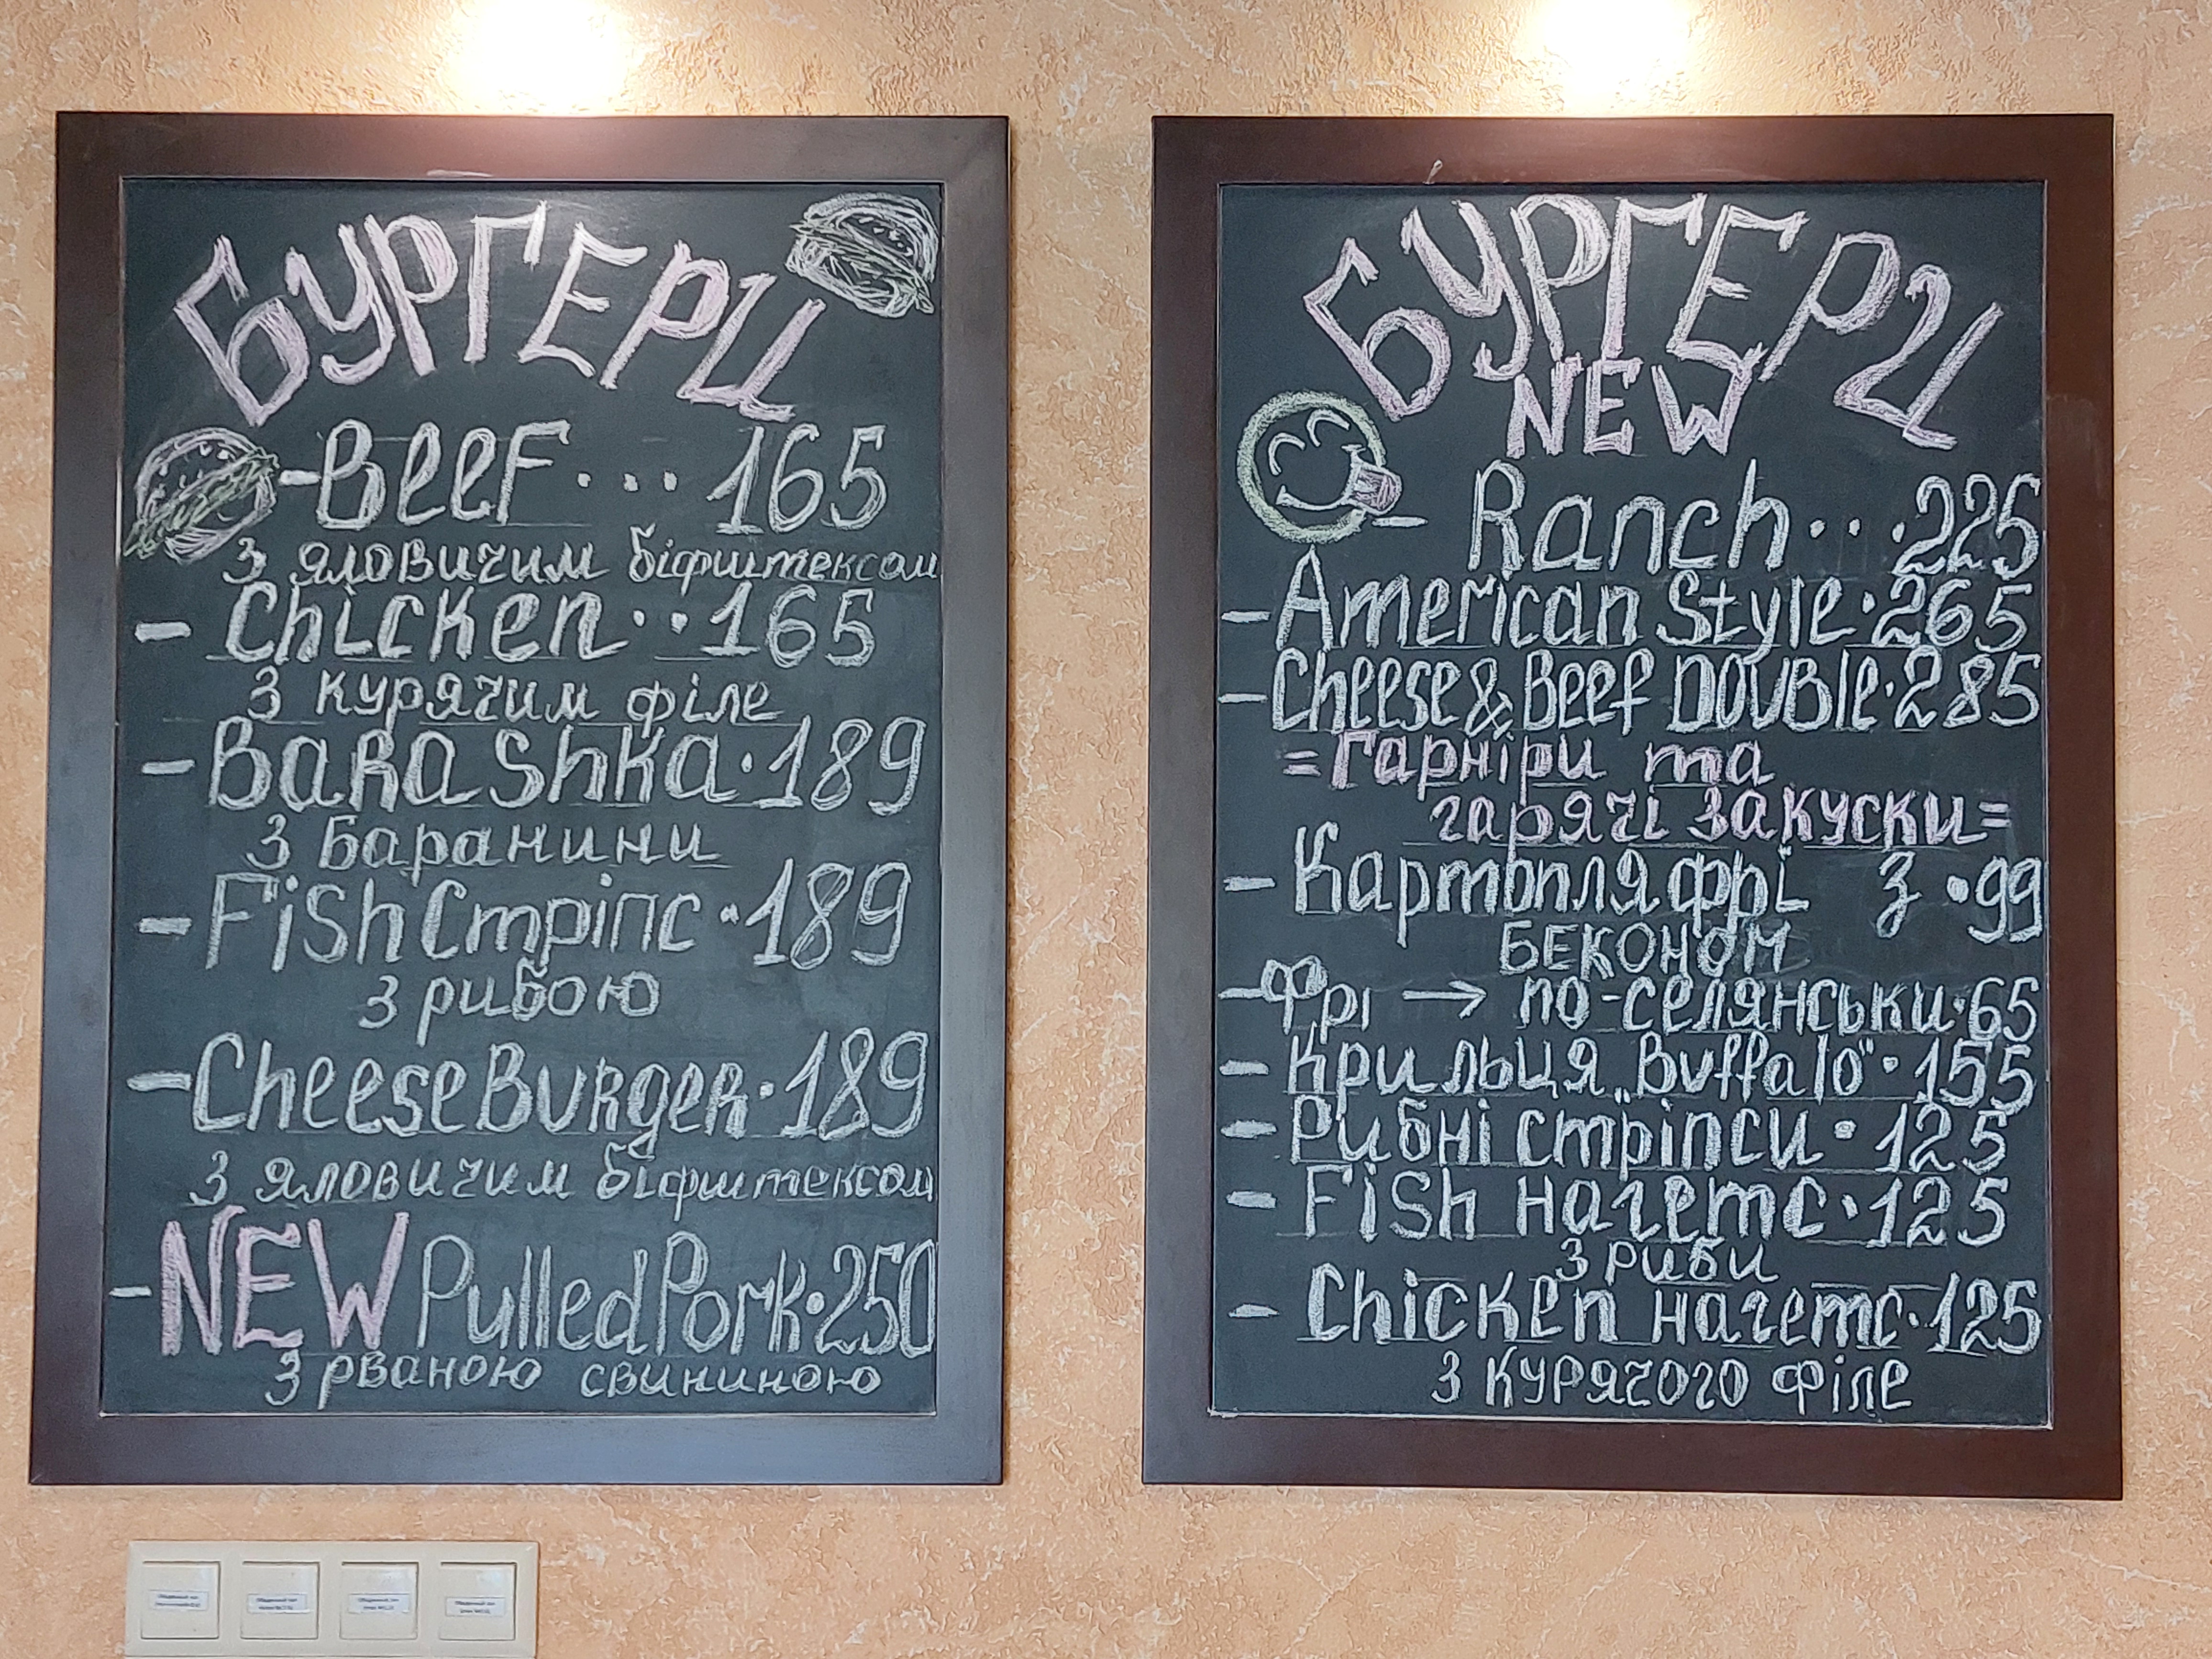 БУРГЕРИ
-Beef...165
з яловичим біфштексом
- Chicken..165
з курячим філе
- Barashka.189
з баранини
- Fish Стріпс.189
з рибою
- CheeseBurger.189
з яловичим біфштексом
- NEW Pulled Pork.250
з рваною свининою
БУРГЕРИ
NEW
- Ranch...225
- American Style.265
- Cheese & Beef Double.285
=Гарніри та
гарячі закуски=
- Картопля фрі з .99
беконом
- Фрі → по-селянськи.65
- Крильця „Buffalo".155
- Рибні стріпси.125
- Fish нагетс.125
з риби
- Chicken нагетс.125
з курячого філе